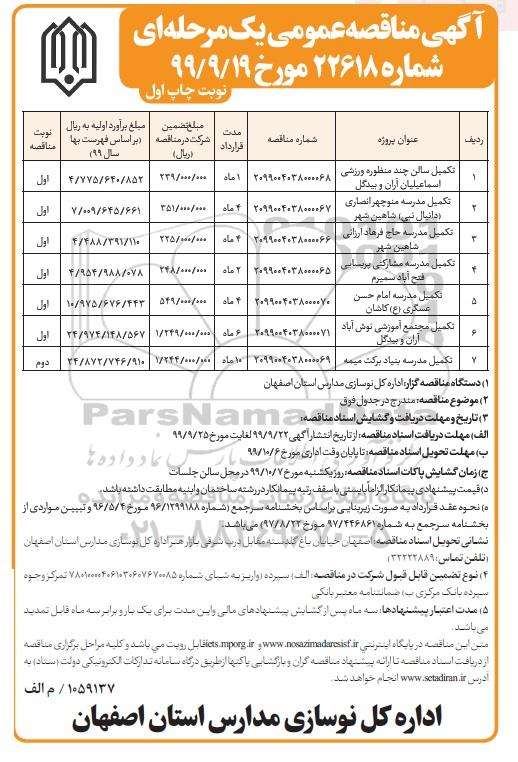 آگهی مناقصه عمومی یک مرحله‌ای
شماره ۲۲۶۱۸ مورخ ۹۹/۹/۱۹
نوبت چاپ اول
ردیف | عنوان پروژه | شماره مناقصه | مدت قرارداد | مبلغ تضمین شرکت در مناقصه (ریال) | مبلغ برآورد اولیه به ریال (بر اساس فهرست بها سال ۹۹) | نوبت مناقصه
۱ | تکمیل سالن چند منظوره ورزشی اسماعیلیان آران و بیدگل | ۲۰۹۹۰۰۴۰۳۸۰۰۰۰۶۸ | ۱ ماه | ۲۳۹/۰۰۰/۰۰۰ | ۴/۷۷۵/۶۴۰/۸۵۲ | اول
۲ | تکمیل مدرسه منوچهر انصاری (دانیال نبی) شاهین شهر | ۲۰۹۹۰۰۴۰۳۸۰۰۰۰۶۷ | ۴ ماه | ۳۵۱/۰۰۰/۰۰۰ | ۷/۰۰۹/۶۴۵/۶۶۱ | اول
۳ | تکمیل مدرسه حاج فرهاد ارزانی شاهین شهر | ۲۰۹۹۰۰۴۰۳۸۰۰۰۰۶۶ | ۴ ماه | ۲۲۵/۰۰۰/۰۰۰ | ۴/۴۸۸/۳۹۱/۱۱۰ | اول
۴ | تکمیل مدرسه مشارکتی پریسایی فتح آباد سمیرم | ۲۰۹۹۰۰۴۰۳۸۰۰۰۰۶۵ | ۲ ماه | ۲۴۸/۰۰۰/۰۰۰ | ۴/۹۵۴/۹۸۸/۰۷۸ | اول
۵ | تکمیل مدرسه امام حسن عسگری (ع) کاشان | ۲۰۹۹۰۰۴۰۳۸۰۰۰۰۷۰ | ۴ ماه | ۵۴۹/۰۰۰/۰۰۰ | ۱۰/۹۷۵/۶۷۶/۴۴۳ | اول
۶ | تکمیل مجتمع آموزشی نوش آباد آران و بیدگل | ۲۰۹۹۰۰۴۰۳۸۰۰۰۰۷۱ | ۶ ماه | ۱/۲۴۹/۰۰۰/۰۰۰ | ۲۴/۹۷۴/۱۴۸/۵۶۷ | اول
۷ | تکمیل مدرسه بنیاد برکت میمه | ۲۰۹۹۰۰۴۰۳۸۰۰۰۰۶۹ | ۱۰ ماه | ۱/۲۴۴/۰۰۰/۰۰۰ | ۲۴/۸۷۲/۷۴۶/۹۱۰ | دوم
۱) دستگاه مناقصه گزار: اداره کل نوسازی مدارس استان اصفهان
۲) موضوع مناقصه: مندرج در جدول فوق
۳) تاریخ و مهلت دریافت و گشایش اسناد مناقصه:
الف) مهلت دریافت اسناد مناقصه: از تاریخ انتشار آگهی ۹۹/۹/۲۲ لغایت مورخ ۹۹/۹/۲۵
ب) مهلت تحویل اسناد مناقصه: تا پایان وقت اداری مورخ ۹۹/۱۰/۶
ج) زمان گشایش پاکات اسناد مناقصه: روز یکشنبه مورخ ۹۹/۱۰/۷ در محل سالن جلسات
د) قیمت پیشنهادی پیمانکار الزاماً بایستی با سقف رتبه پیمانکار در رشته ساختمان و ابنیه مطابقت داشته باشد.
ه) نحوه عقد قرارداد به صورت زیربنایی بر اساس بخشنامه سرجمع (شماره ۹۶/۱۲۹۹۱۸۸ مورخ ۹۶/۵/۴ و تبیین مواردی از
بخشنامه سرجمع به شماره ۹۷/۴۴۶۸۶۱ مورخ ۹۷/۸/۲۳) می‌باشد.
نشانی تحویل اسناد مناقصه: اصفهان خیابان باغ گلدسته مقابل درب شرقی بازار هنر اداره کل نوسازی مدارس استان اصفهان
(تلفن تماس: ۳۲۲۲۲۸۸۹)
۴) نوع تضمین قابل قبول شرکت در مناقصه: الف) سپرده (واریز به شبای شماره ۷۸۰۱۰۰۰۰۴۰۶۱۰۳۰۶۰۷۶۷۰۰۸۵ تمرکز وجوه
سپرده بانک مرکزی ب) ضمانتنامه معتبر بانکی
۵) مدت اعتبار پیشنهادها: سه ماه پس از گشایش پیشنهادهای مالی و این مدت برای یک بار و برابر سه ماه قابل تمدید
می‌باشد.
متن این مناقصه در پایگاه اینترنتي www.nosazimadaresisf.ir و iets.mporg.ir قابل رویت می باشد و کلیه مراحل برگزاری مناقصه
از دریافت اسناد مناقصه تا ارائه پیشنهاد مناقصه گران و بازگشایی پاکتها از طریق درگاه سامانه تدارکات الکترونیکی دولت (ستاد) به
آدرس www.setadiran.ir انجام خواهد شد.
۱۰۵۹۱۳۷ / م الف
اداره کل نوسازی مدارس استان اصفهان
ParsNamadData